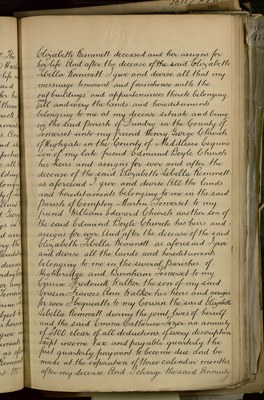 Elizabeth Kemmett deceased and her assigns for
her life And after the decease of the said Elizabeth
Sibella Kemmett I give and devise all that my
messuage tenement and farmhouse with the
outbuildings and appurtenances thereto belonging
all and every the lands and hereditaments
belonging to me at my decease situate and being
in the said Parish of Dundry in the County of
Somerset unto my friend Henry George Church
of Highgate in the County of Middlesex Esquire
son of my late friend Edmund Doyle Church
his heirs and assigns for ever and after the
decease of the said Elizabeth Sibella Kemmett
as aforesaid I give and devise all the lands
and hereditaments belonging to me in the said
Parish of Compton Martin Somerset to my
friend William Edward Church another son of
the said Edmund Doyle Church his heirs and
assigns for ever And after the decease of the said
Elizabeth Sibella Kemmett as aforesaid I give
and devise all the lands and hereditaments
belonging to me in the several Parishes of
Highbridge and Burnham Somerset to my
Cousin Frederick Walker the son of my said
Cousin Frances Ann Walker his heirs and assigns
for ever I bequeath to my Cousin the said Elizabeth
Sibella Kemmett during the joint lives of herself
and the said Emma Catherine an annuity
of £100 clear of all deductions of every description
except income tax and payable quarterly the
first quarterly payment to become due and be
made at the expiration of three calendar months
after my decease And I charge the said Annuity